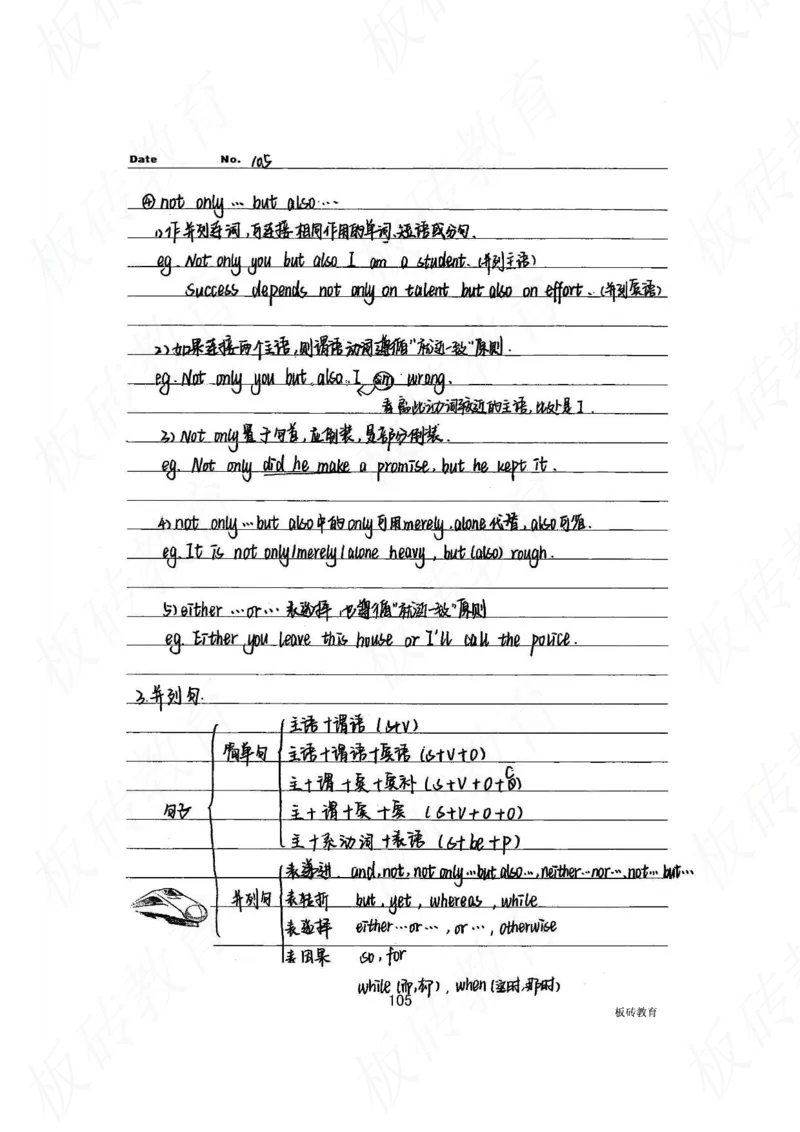 Date No. 105
④ not only … but also …
1)作并列连词,可连接相同作用的单词、短语或分句.
eg. Not only you but also I am a student. (并列主语)
Success depends not only on talent but also on effort. (并列宾语)
2)如果连接两个主语,则谓语动词遵循"就近一致"原则.
eg. Not only you but also I am wrong.
看离此动词较近的主语,此处是I.
3) Not only置于句首,应倒装,是部分倒装.
eg. Not only did he make a promise, but he kept it.
4) not only … but also中的only可用merely, alone代替, also可省.
eg. It is not only/merely/alone heavy, but (also) rough.
5) either … or … 表选择,也遵循"就近一致"原则
eg. Either you leave this house or I'll call the police.
3.并列句.
句子
简单句
主语+谓语 (s+v)
主语+谓语+宾语 (s+v+o)
主+谓+宾+宾补 (s+v+o+c)
主+谓+宾+宾 (s+v+o+o)
主+系动词+表语 (s+be+p)
并列句
表递进. and, not, not only … but also …, neither … nor …, not … but …
表转折 but, yet, whereas, while
表选择 either … or …, or …, otherwise
表因果 so, for
while (而,却), when (这时,那时)
105
板砖教育